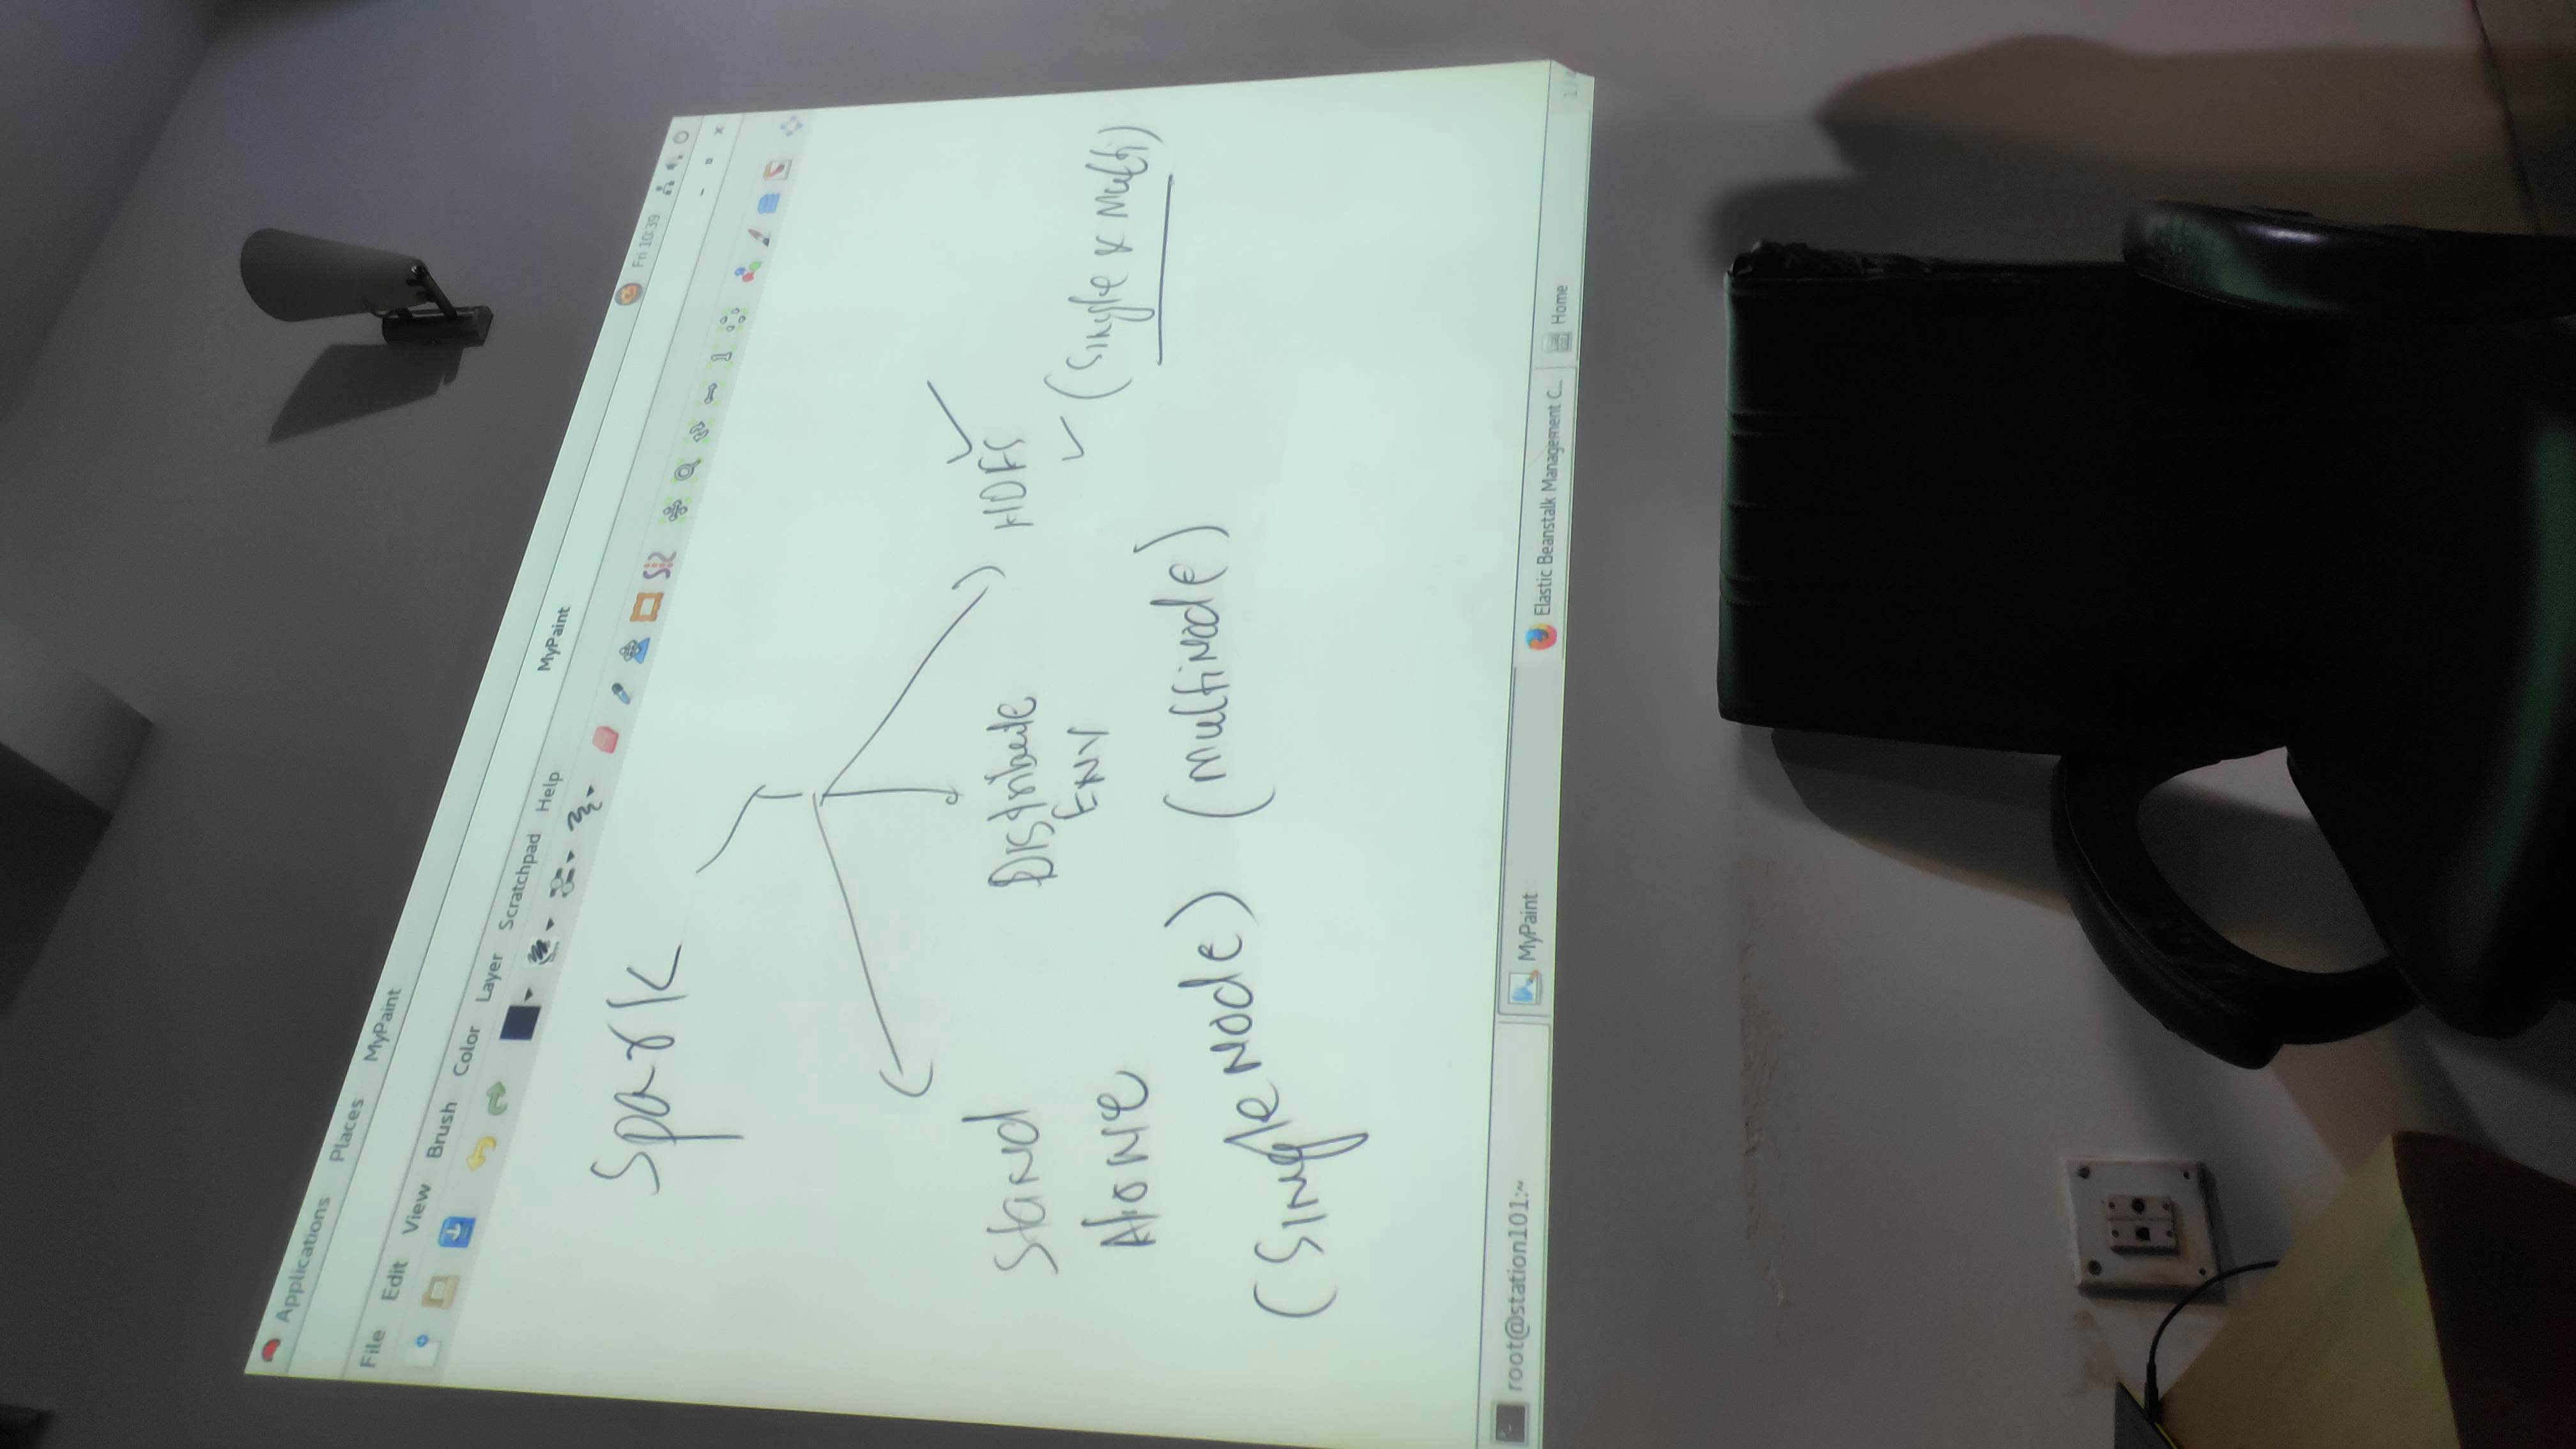 Applications Places MyPaint
MyPaint
Fri 10:39
File Edit View Brush Color Layer Scratchpad Help
Spark
Stand
Alone
(Single Node)
Distribute
ENV
(multinode)
HDFS
(Single & Multi)
root@station101:~
MyPaint
Elastic Beanstalk Management C...
Home